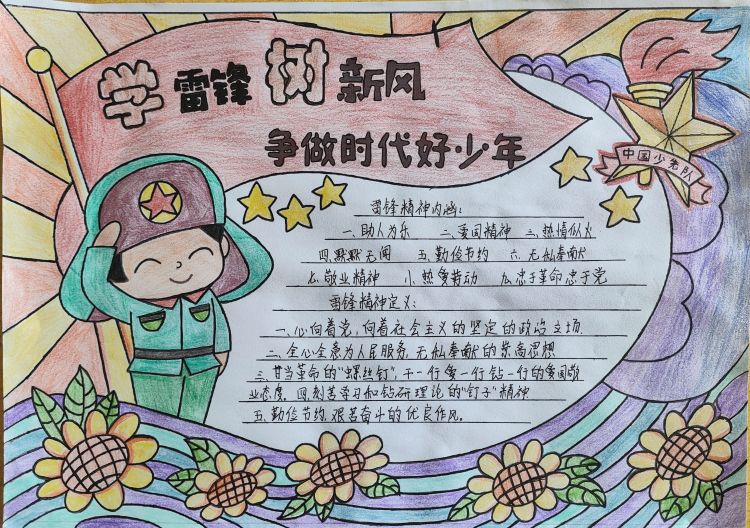 学雷锋树新风
争做时代好少年
中国少先队
雷锋精神内涵:
一、助人为乐 二、爱国精神 三、热情似火
四、默默无闻 五、勤俭节约 六、无私奉献
七、敬业精神 八、热爱劳动 九、忠于革命忠于党
雷锋精神定义:
一、心向着党,向着社会主义的坚定的政治立场
二、全心全意为人民服务,无私奉献的崇高思想
三、甘当革命的“螺丝钉”,干一行爱一行钻一行的爱国敬
业态度,四、刻苦学习和钻研理论的“钉子”精神
五、勤俭节约,艰苦奋斗的优良作风。